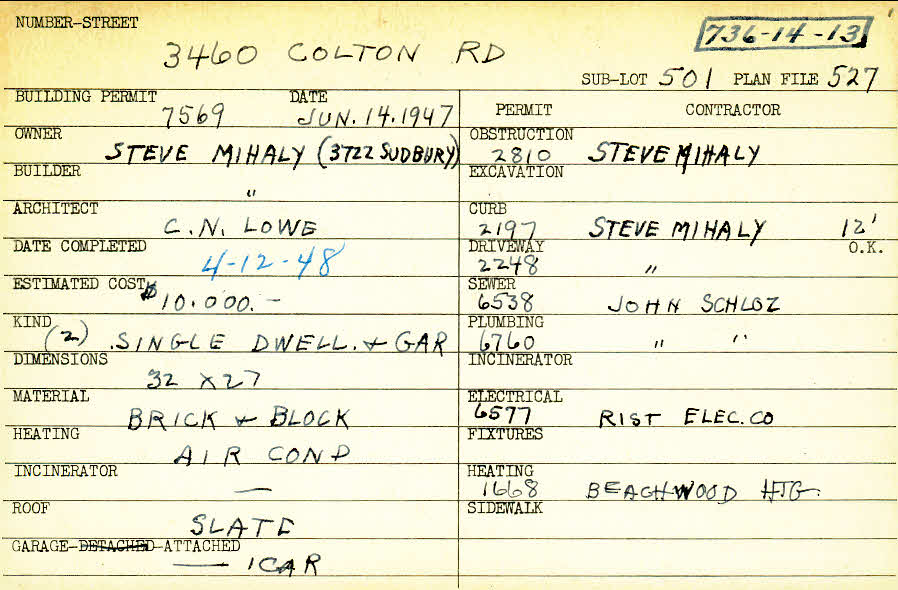 NUMBER-STREET
3460 COLTON RD
736-14-13
SUB-LOT 501 PLAN FILE 527
BUILDING PERMIT 7569 DATE JUN. 14. 1947
OWNER STEVE MIHALY (3722 SUDBURY)
BUILDER "
ARCHITECT C. N. LOWE
DATE COMPLETED 4-12-48
ESTIMATED COST $10.000.-
KIND (2) SINGLE DWELL. & GAR
DIMENSIONS 32 X 27
MATERIAL BRICK & BLOCK
HEATING AIR COND
INCINERATOR —
ROOF SLATE
GARAGE-DETACHED-ATTACHED — 1 CAR
PERMIT CONTRACTOR
OBSTRUCTION 2810 STEVE MIHALY
EXCAVATION
CURB 2197 STEVE MIHALY 12'
DRIVEWAY 2248 " O.K.
SEWER 6538 JOHN SCHLOZ
PLUMBING 6760 " "
INCINERATOR
ELECTRICAL 6577 RIST ELEC. CO
FIXTURES
HEATING 1668 BEACHWOOD HTG.
SIDEWALK